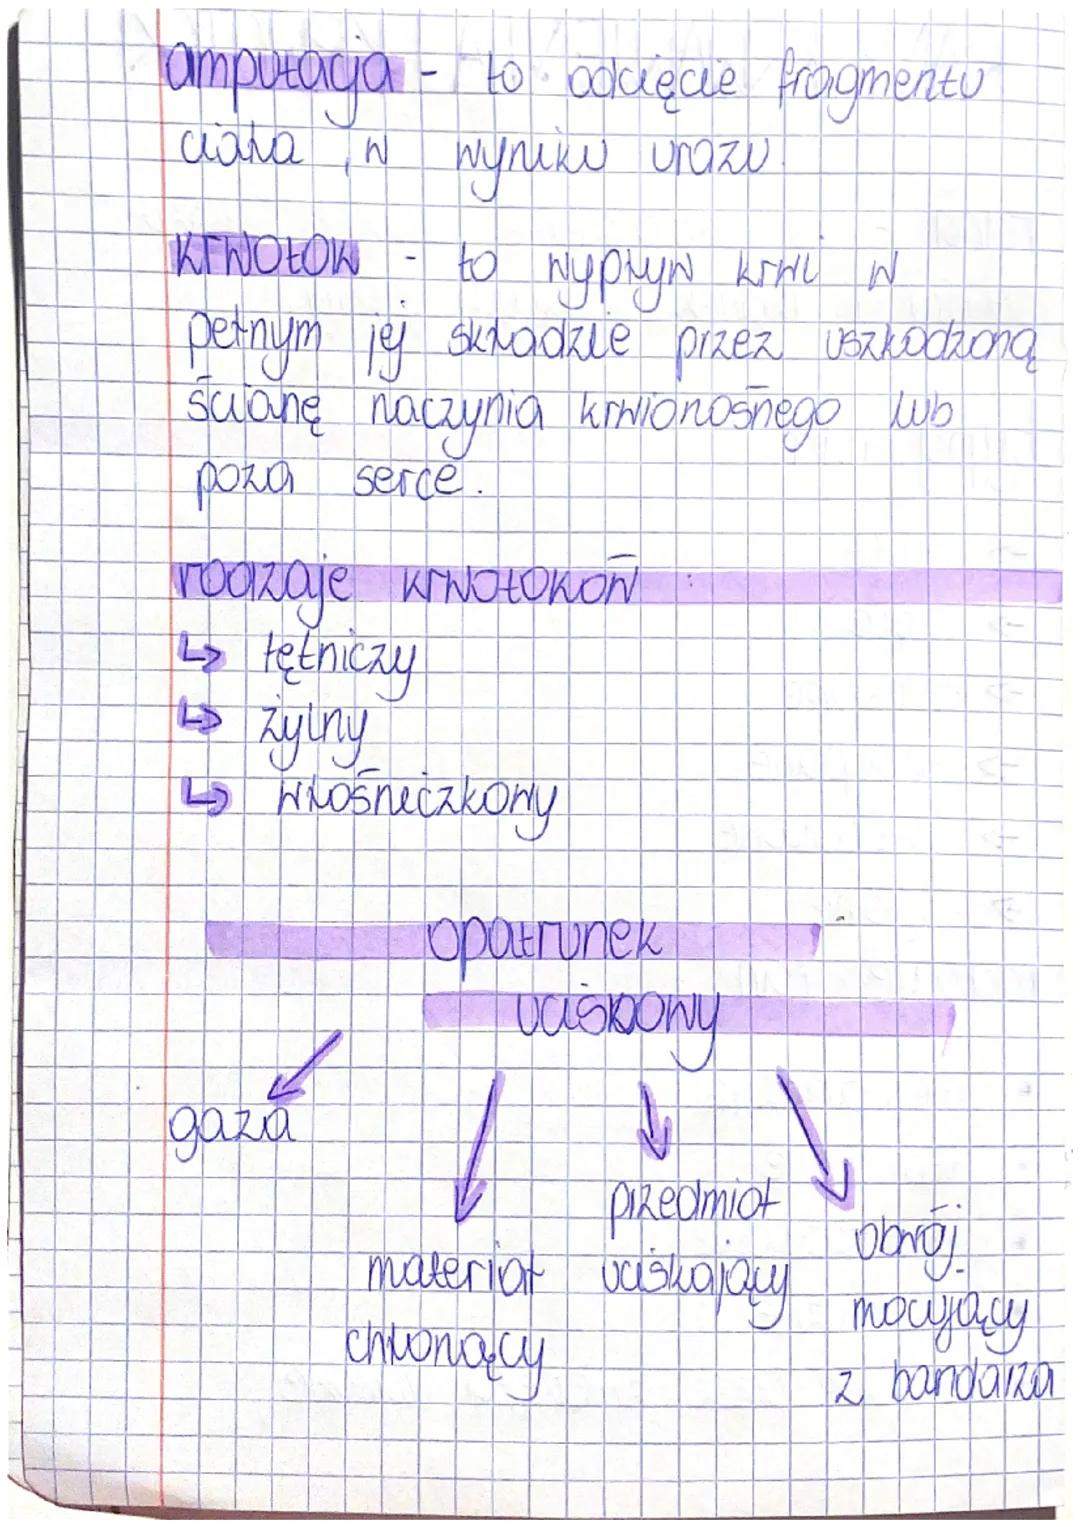 amputacja - to odcięcie fragmentu
ciała, w wyniku urazu.
krwotok - to wypływ krwi w
pełnym jej składzie przez uszkodzoną
ścianę naczynia krwionośnego lub
poza serce.
rodzaje krwotoków:
↳ tętniczy
↳ żylny
↳ włośniczkowy
opatrunek
uciskowy
gaza
materiał
chłonący
przedmiot
uciskający
obwój
mocujący
z bandaża